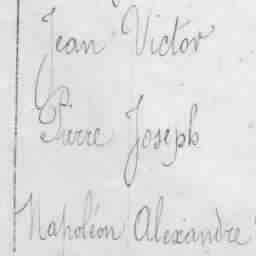 Jean Victor
Pierre Joseph
Napoléon Alexandre